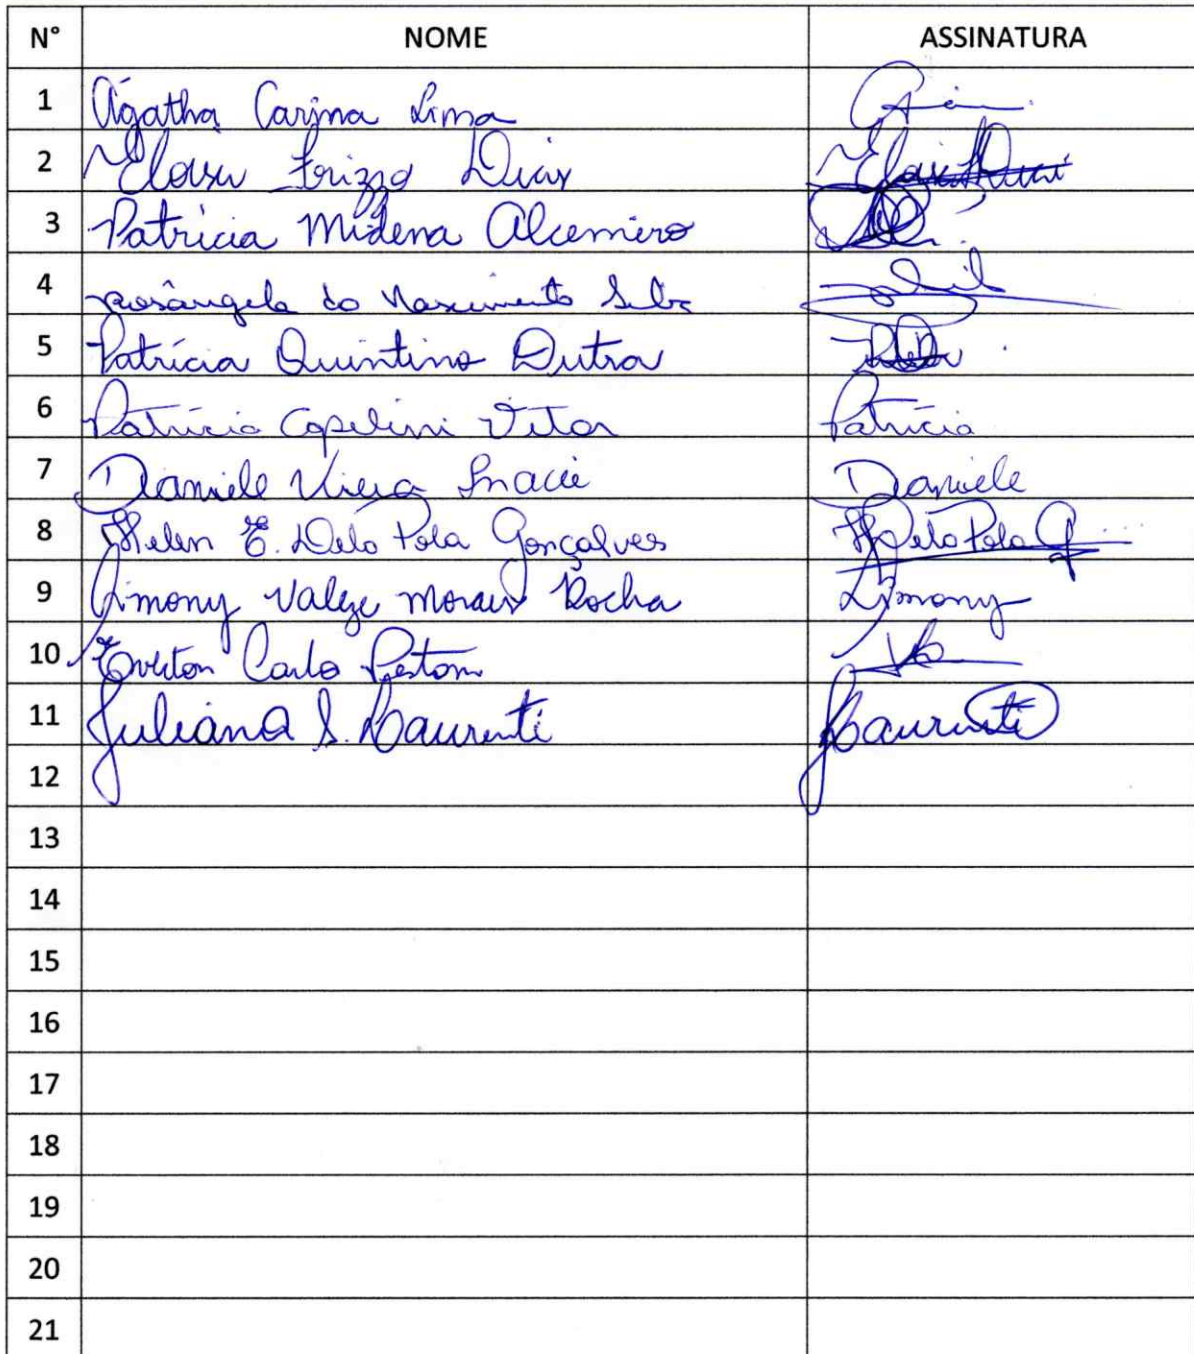 N° NOME ASSINATURA
1 Ágatha Carina Lima
2 Eloisa Frizzo Dias
3 Patrícia Midena Alcemiro
4 Rosângela do Nascimento Silva
5 Patrícia Quintino Dutra
6 Patrícia Copelini Vitor Patrícia
7 Daniele Vieira Inacio Daniele
8 Helen E. Delo Pola Gonçalves HDelo Pola G
9 Simony Valeze Moraes Rocha Simony
10 Everton Carlo
11 Juliana S. Laurenti JLaurenti
12
13
14
15
16
17
18
19
20
21